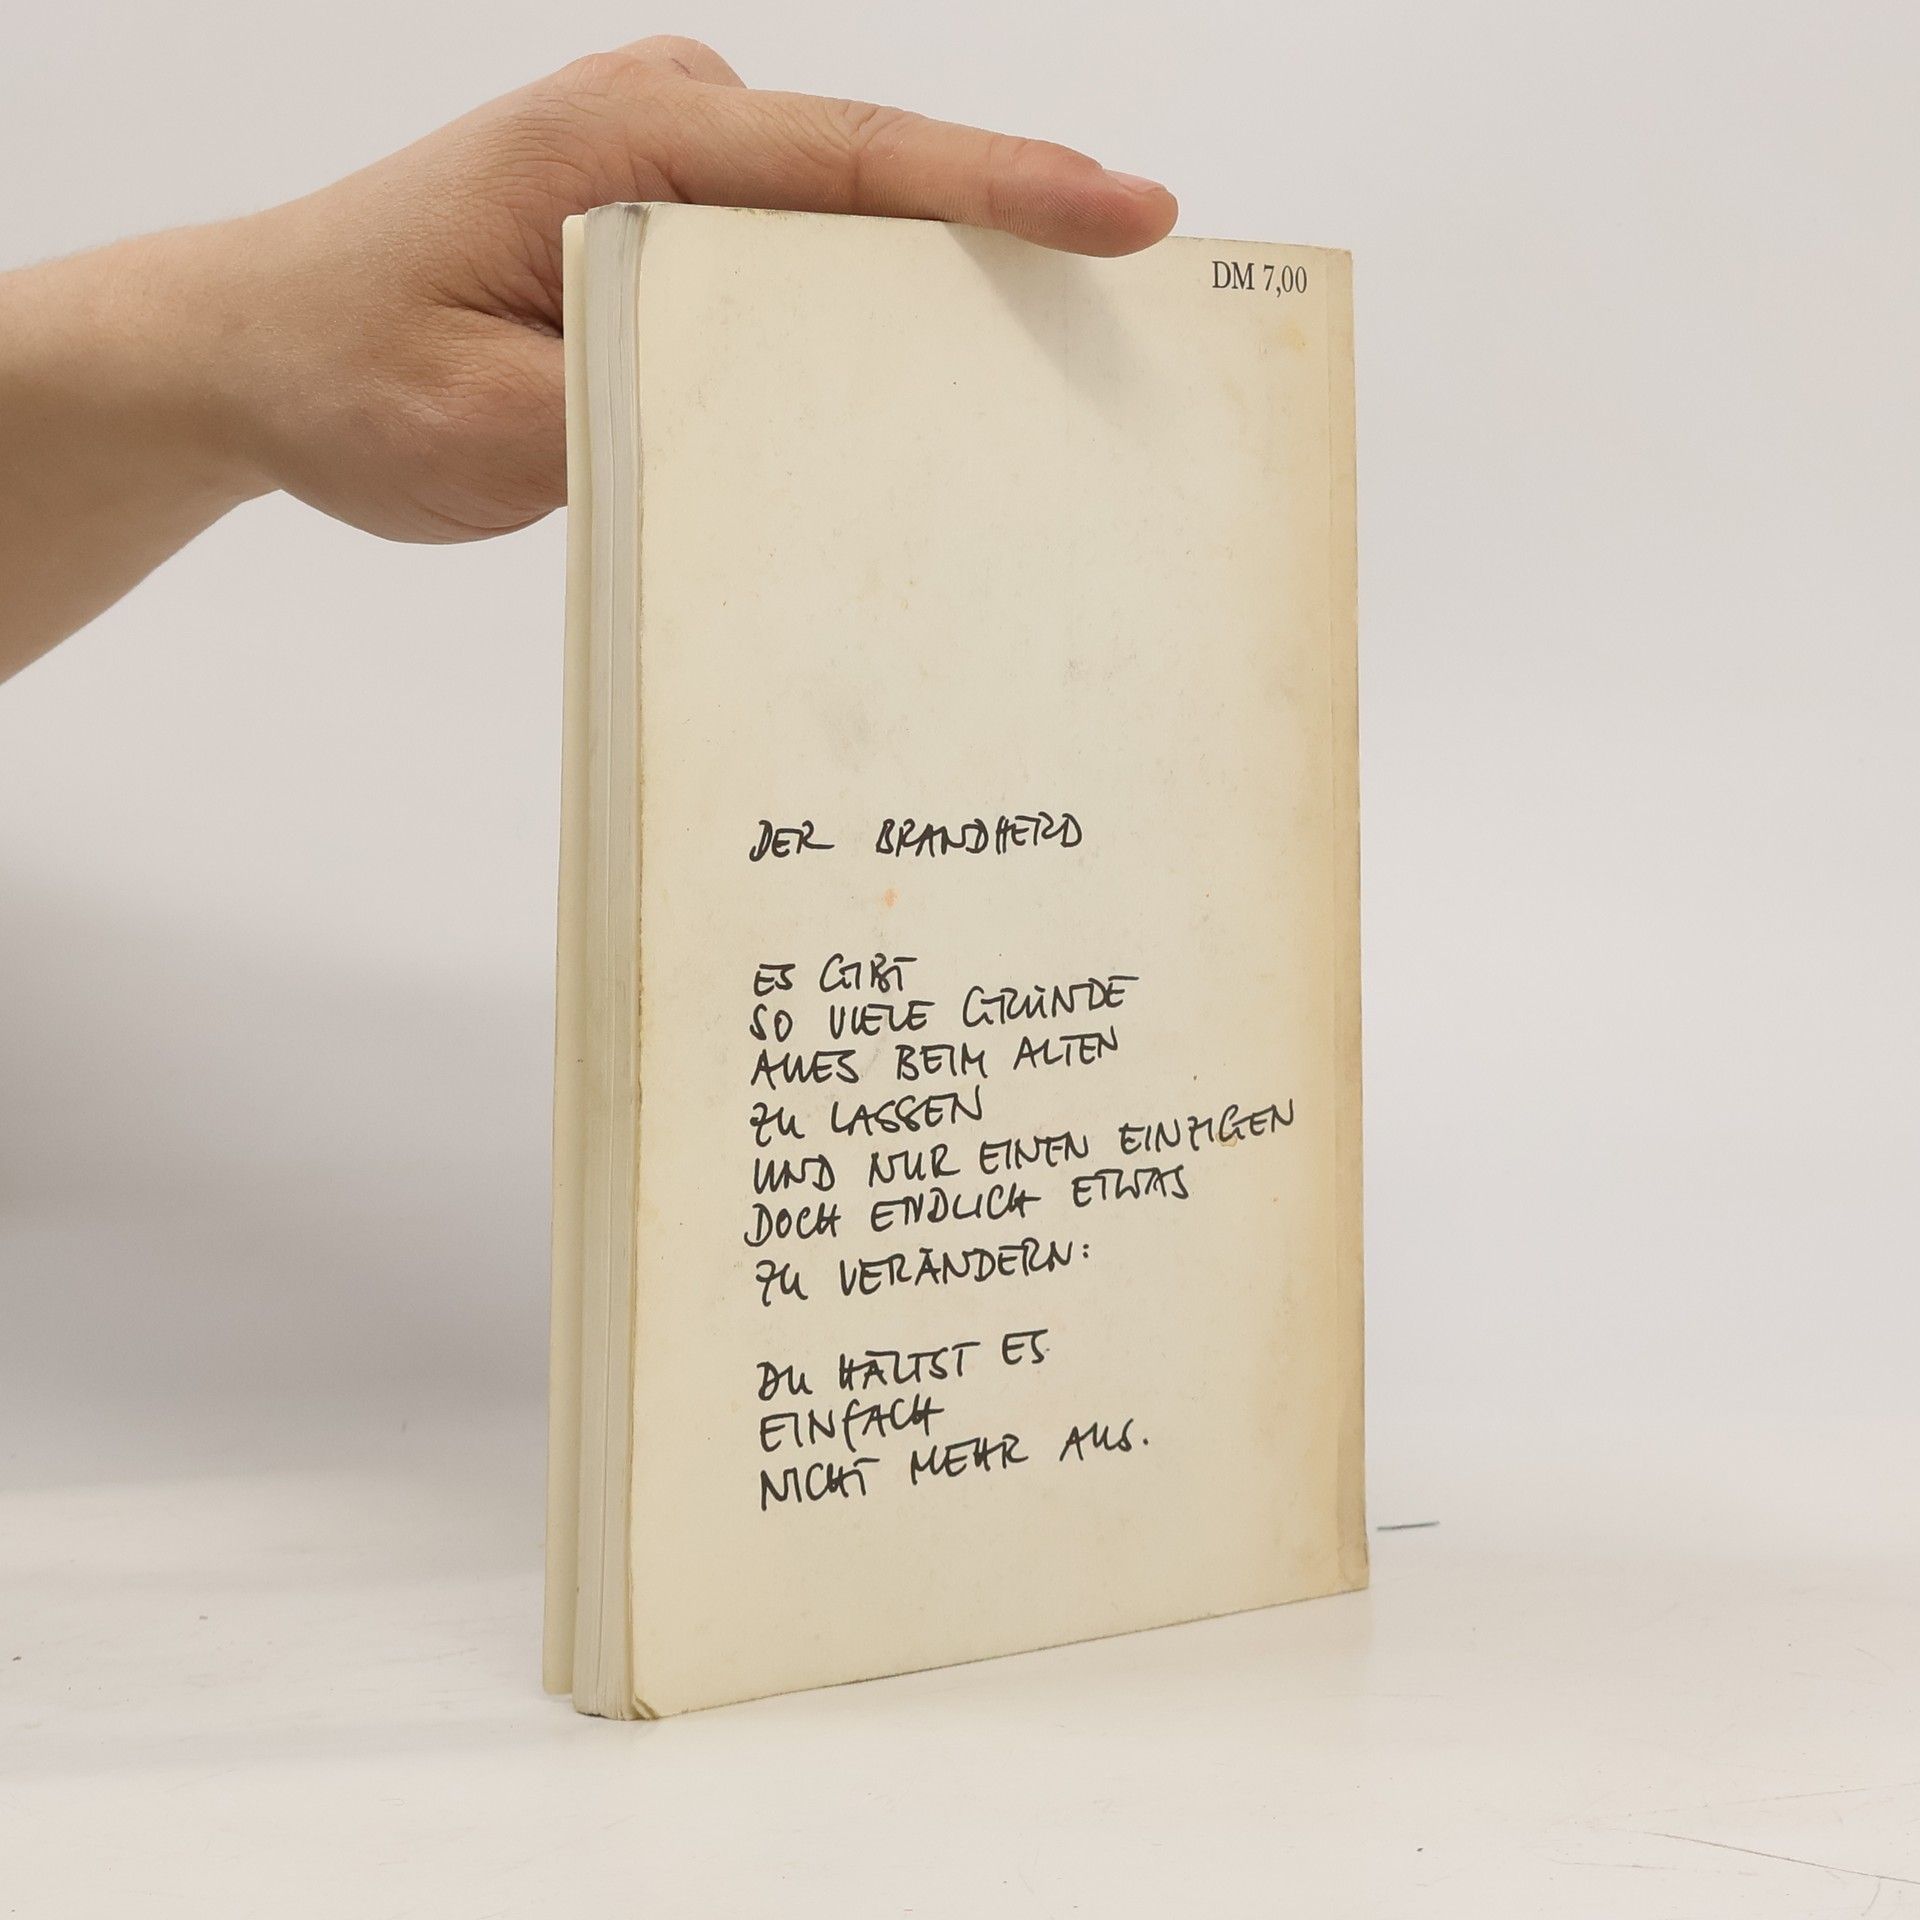 DM 7,00
DER BRANDHERD
ES GIBT
SO VIELE GRÜNDE
ALLES BEIM ALTEN
ZU LASSEN
UND NUR EINEN EINZIGEN
DOCH ENDLICH ETWAS
ZU VERÄNDERN:
DU HÄLTST ES
EINFACH
NICHT MEHR AUS.